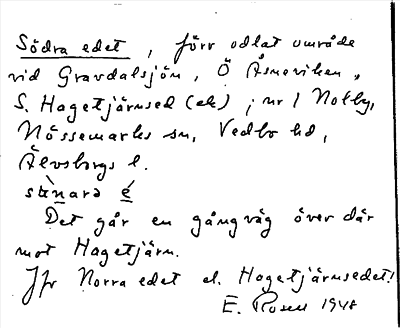 Södra edet, förr odlat område
vid Gravdalsjön, Ö Åsneviken,
S. Hagetjärnsed (ek); nr 1 Nolby,
Nössemarks sn, Vedbo hd,
Älvsborgs l.
Det går en gångväg över där
mot Hagetjärn.
Jfr Norra edet el. Hagetjärnsedet!
E. Rosell 1948